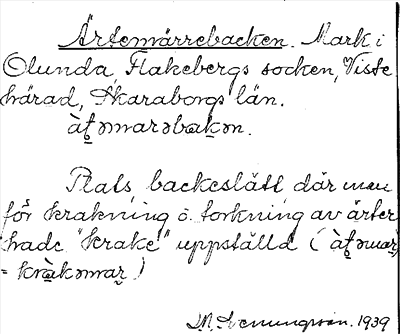 Ärtemärrebacken. Mark i
Olunda, Flakebergs socken, Viste
härad, Skaraborgs län.
àt̬əmarəbakən.
Plats, backeslätt där man
för krakning o. torkning av ärter
hade "krake" uppställd (àt̬əmar̬
= kràkəmar̬)
1939